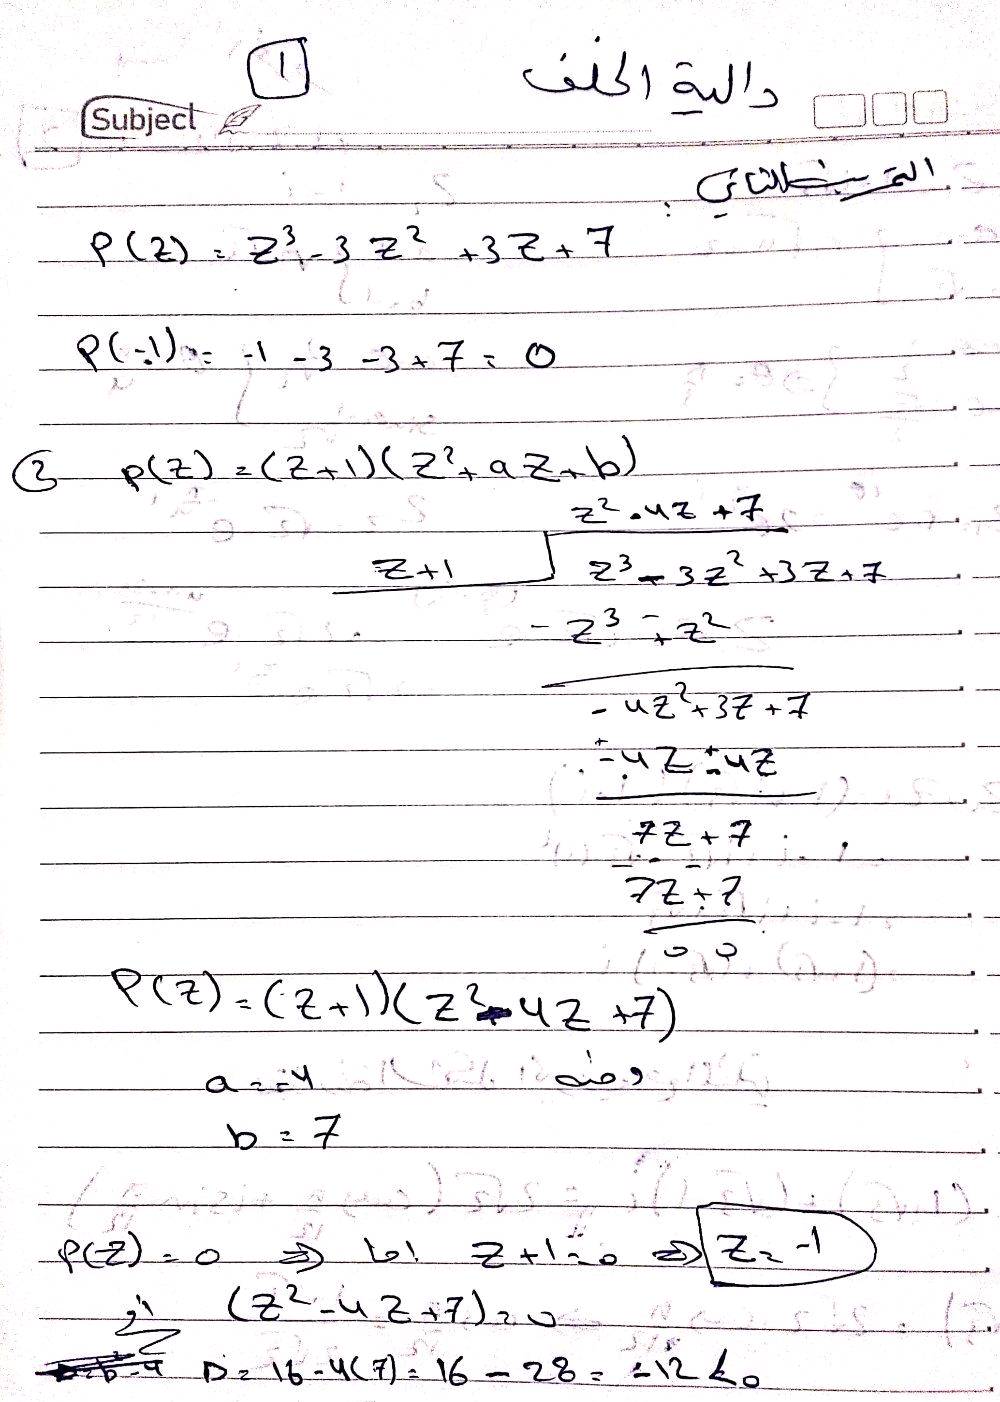 1
دالية الخلف
Subject
التمرين الثاني :
P(z) = z³ - 3z² + 3z + 7
P(-1) = -1 - 3 - 3 + 7 = 0
② p(z) = (z+1)(z² + az + b)
z² - 4z + 7
z+1 z³ - 3z² + 3z + 7
- z³ + z²
- 4z² + 3z + 7
- 4z - 4z
7z + 7
7z + 7
0 0
P(z) = (z+1)(z² - 4z + 7)
ومنه a = -4
b = 7
p(z) = 0 ⇒ اما z + 1 = 0 ⇒ z = -1
أو (z² - 4z + 7) = 0
D = 16 - 4(7) = 16 - 28 = -12 < 0